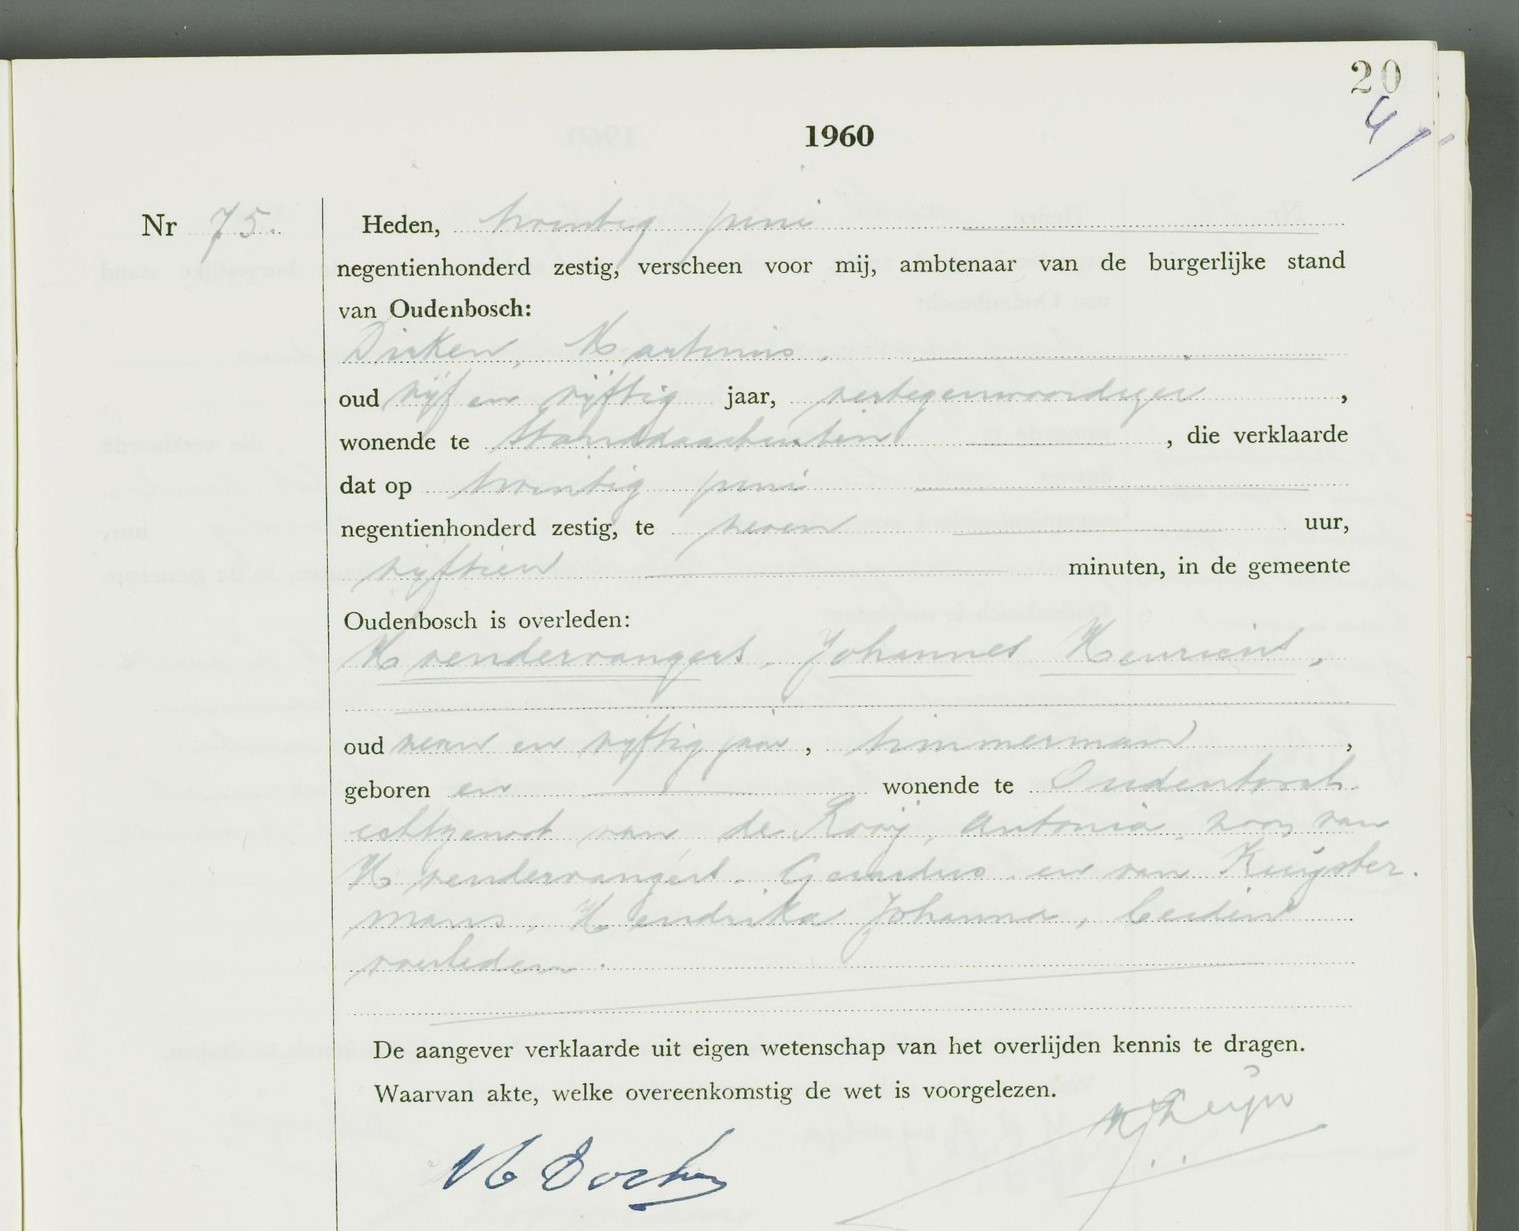 20
4
1960
Nr 75.
Heden, twintig juni
negentienhonderd zestig, verscheen voor mij, ambtenaar van de burgerlijke stand
van Oudenbosch:
Dirken, Martinus,
oud vijf en vijftig jaar, vertegenwoordiger ,
wonende te Standdaarbuiten , die verklaarde
dat op twintig juni
negentienhonderd zestig, te zeven uur,
vijftien minuten, in de gemeente
Oudenbosch is overleden:
Hrendervangers, Johannes Henricus,
oud en vijftig jaar , timmerman ,
geboren en wonende te Oudenbosch.
echtgenoot van de Rooij, Antonia, zoon van
Gerardus en van Kuijster-
mans, Hendrika Johanna, beiden
overleden.
De aangever verklaarde uit eigen wetenschap van het overlijden kennis te dragen.
Waarvan akte, welke overeenkomstig de wet is voorgelezen.